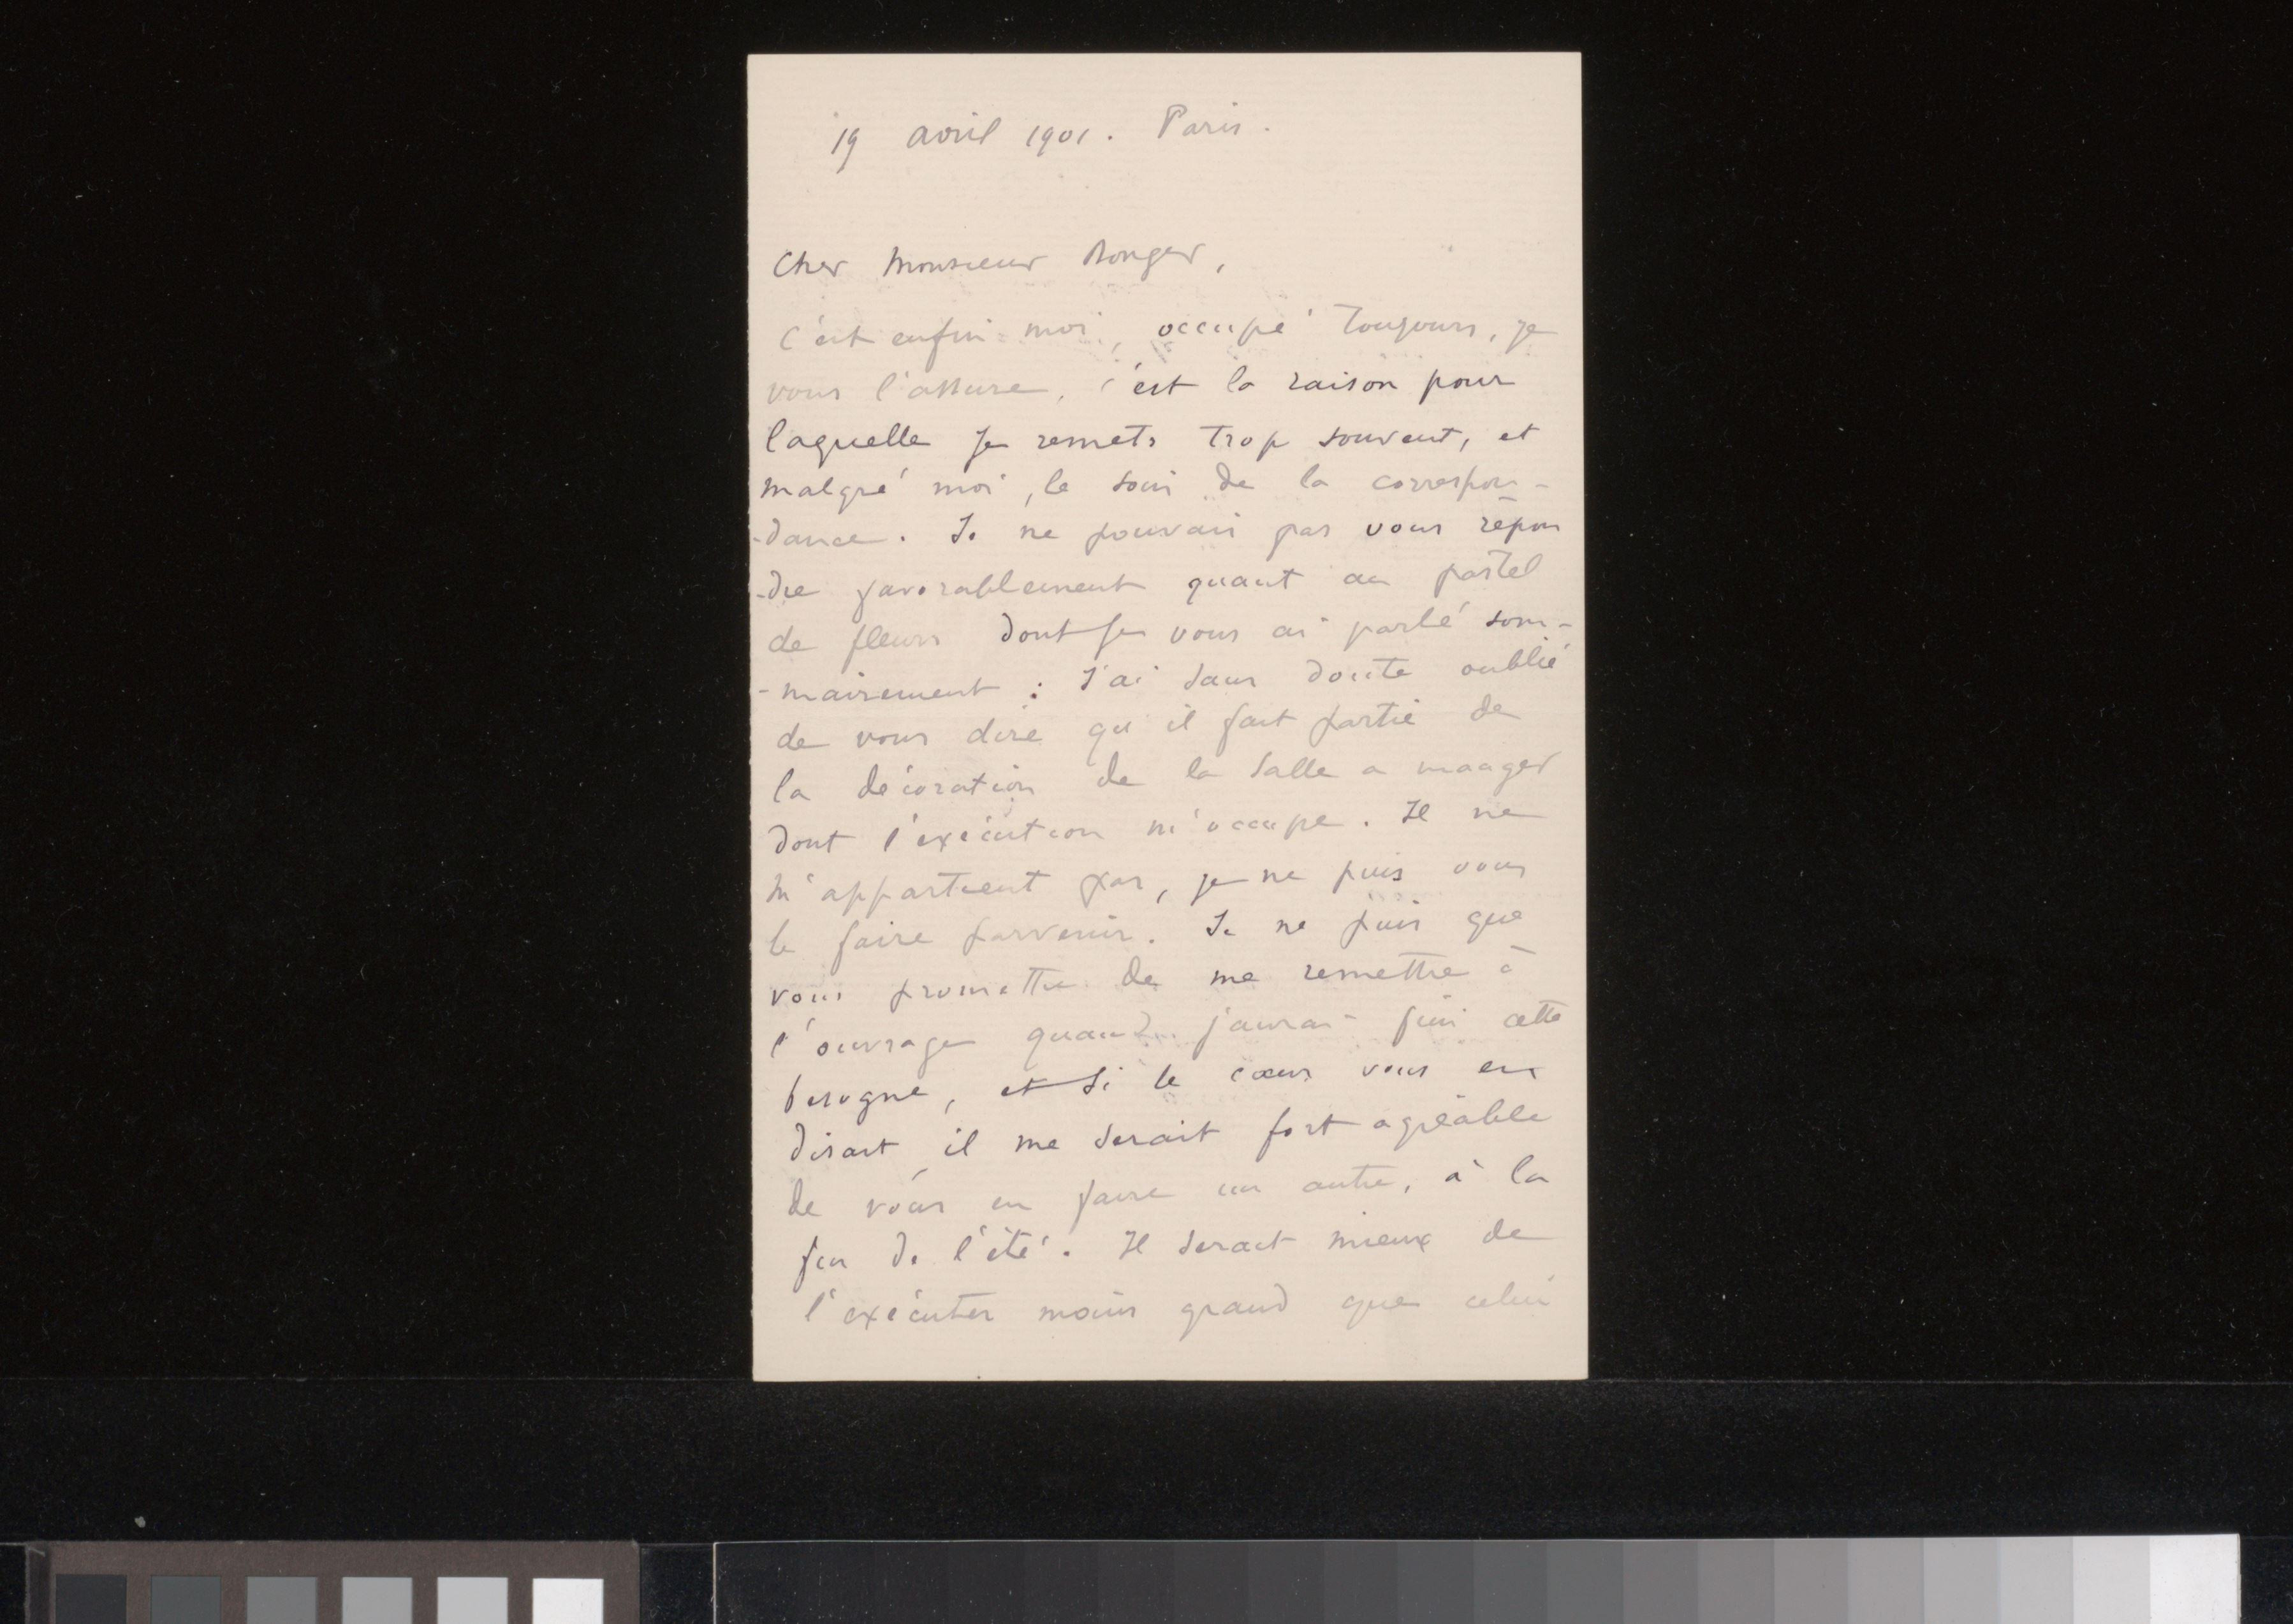 19 avril 1901. Paris.
Cher Monsieur Bonger,
C'est enfin moi, occupé toujours, je
vous l'assure, c'est la raison pour
laquelle je remets trop souvent, et
malgré moi, le soin de la correspon-
-dance. Je ne pouvais pas vous répon
-dre favorablement quant au pastel
de fleurs dont je vous ai parlé som-
-mairement : J'ai sans doute oublié
de vous dire qu'il fait partie de
la décoration de la salle a manger
dont l'exécution m'occupe. Il ne
m'appartient pas, je ne puis vous
le faire parvenir. Je ne puis que
vous promettre de me remettre à
l'ouvrage quand j'aurai fini cette
besogne, et si le cœur vous en
disait il me serait fort agréable
de vous en faire un autre, à la
fin de l'été. Il serait mieux de
l'exécuter moins grand que celui